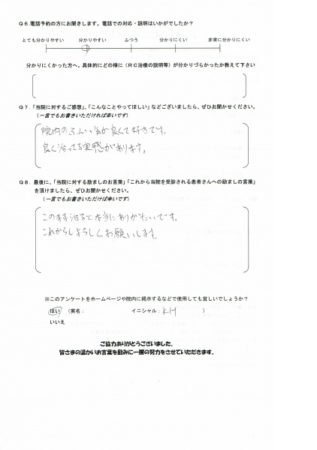 Q6.電話予約の方にお聞きします。電話での対応・説明はいかがでしたか？
とても分かりやすい 分かりやすい ふつう 分かりにくい 非常に分かりにくい
分かりにくかった方へ、具体的にどの様に（RC治療の説明等）が分かりづらかったか教えて下さい
Q7.「当院に対するご感想」、「こんなことやってほしい」などございましたら、ぜひお聞かせください。
（一言でもお書きいただければ幸いです）
院内のふんい気が良くて好きです。
良く治ってる実感があります。
Q8. 最後に、「当院に対する励ましのお言葉」「これから当院を受診される患者さんへの励ましの言葉」
を頂けましたら、ぜひお聞かせください。
（一言でもお書きいただけば幸いです）
このまま治るで本当にありがたいです。
これからもよろしくお願いします。
※このアンケートをホームページや院内に掲示するなどで使用しても宜しいでしょうか？
はい （実名： イニシャル： K.H ）
いいえ
ご協力ありがとうございました。
皆さまの温かいお言葉を励みに一層の努力をさせていただきます。